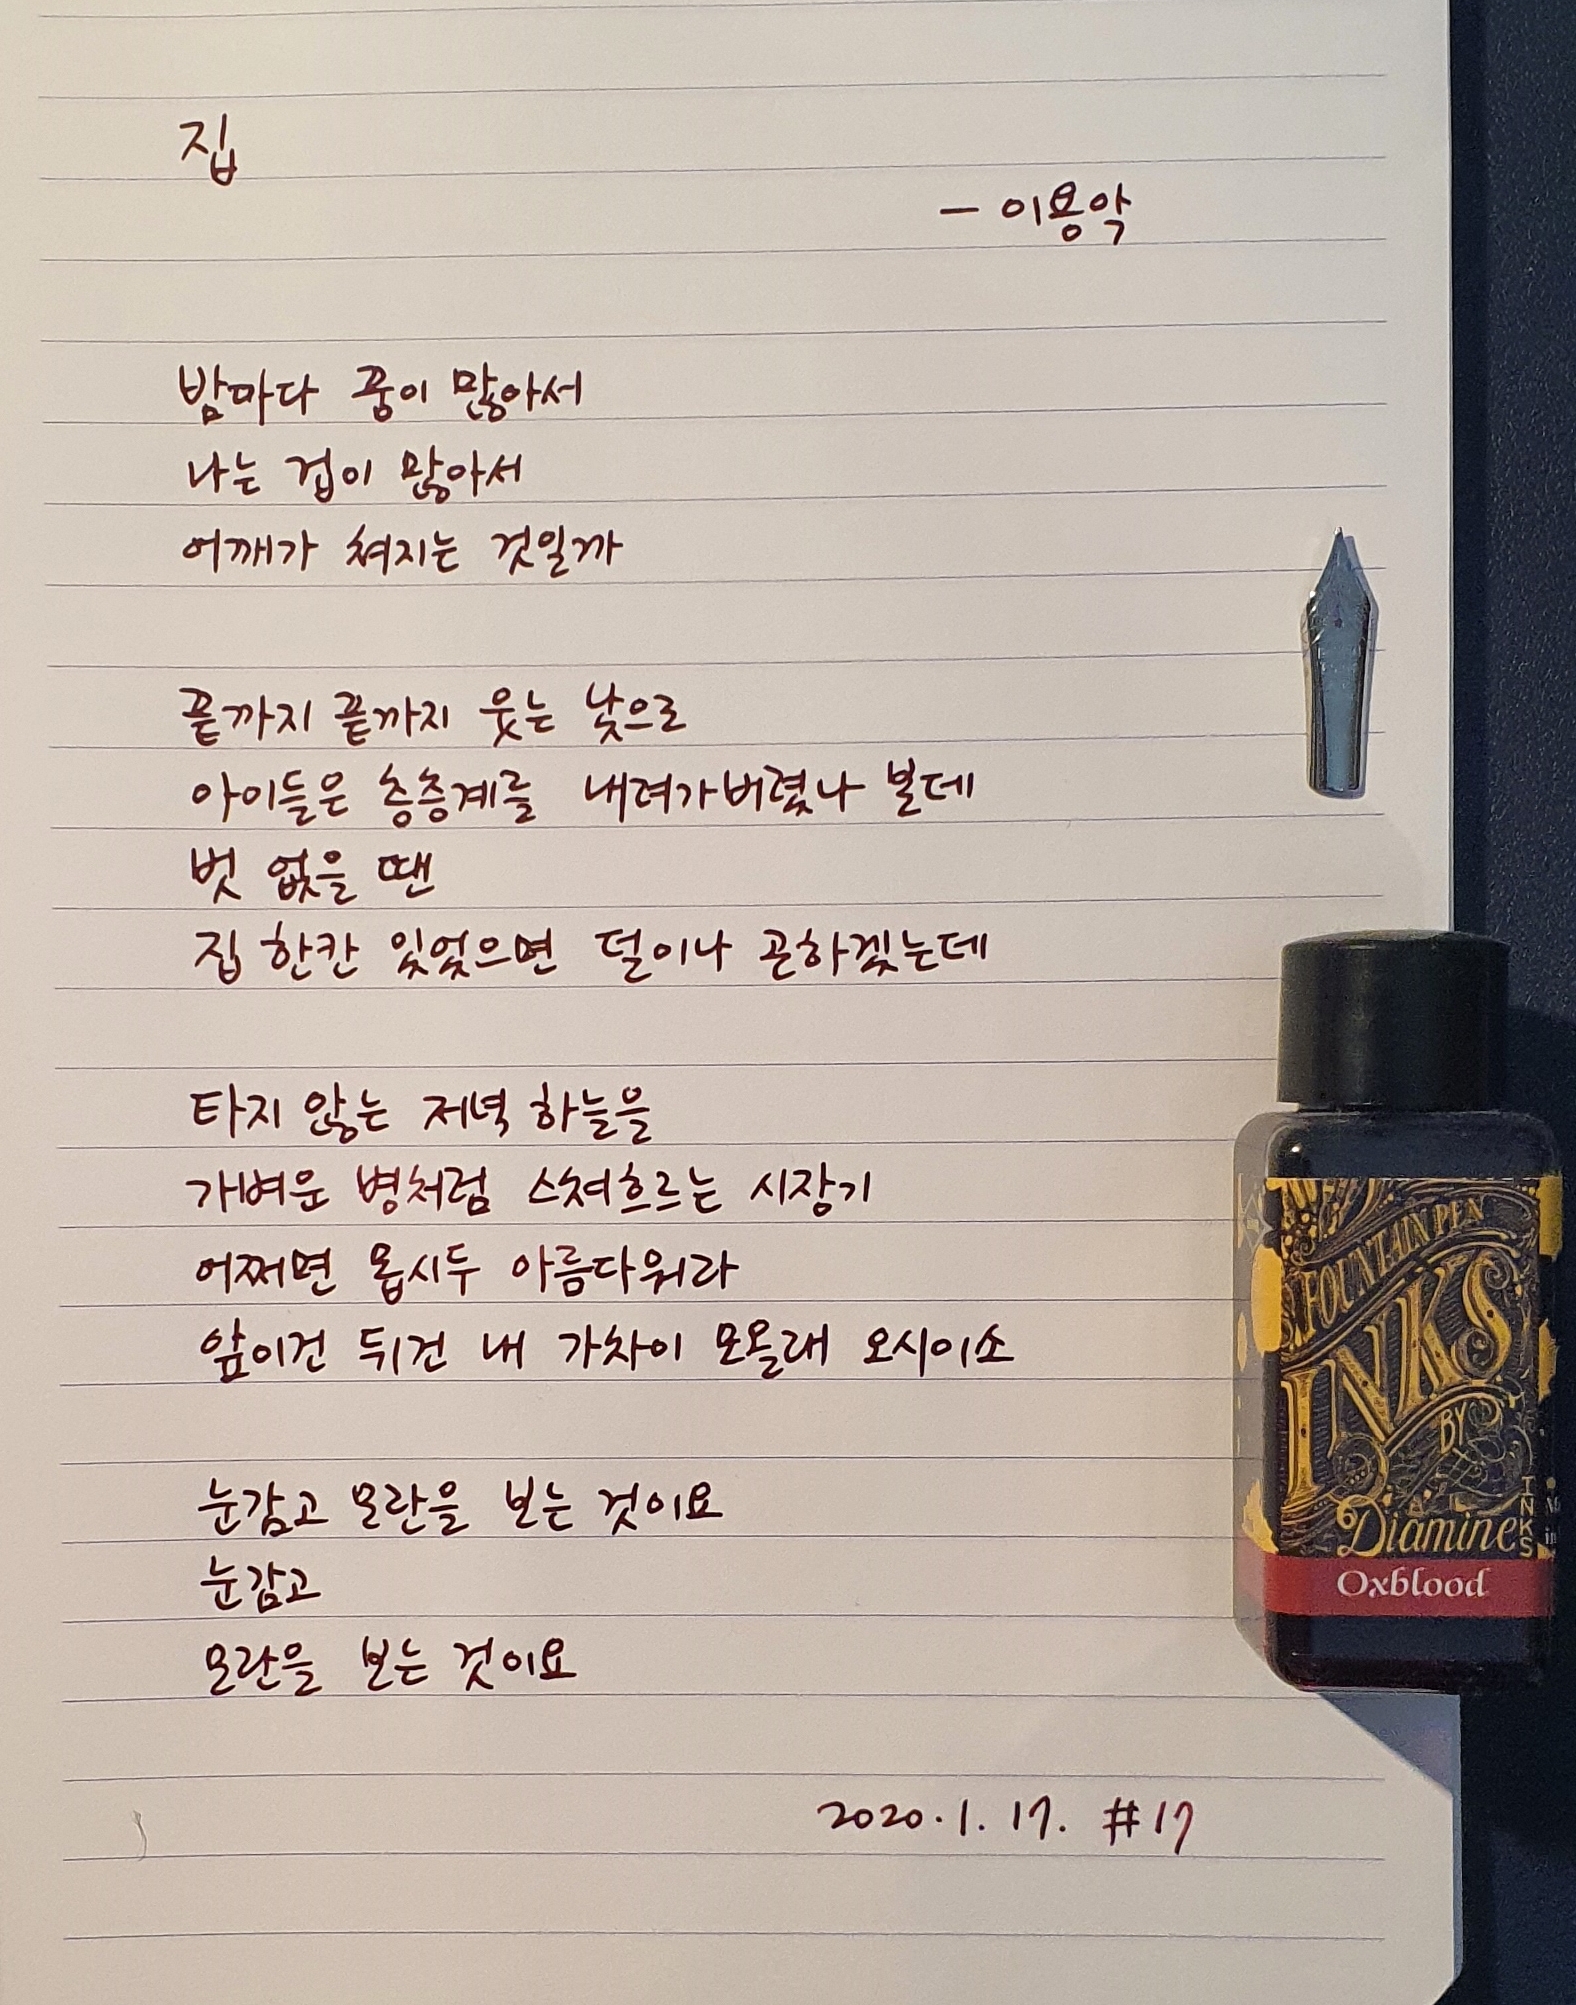 집
- 이용악
밤마다 꿈이 많아서
나는 겁이 많아서
어깨가 쳐지는 것일까
끝까지 끝까지 웃는 낯으로
아이들은 층층계를 내려가버렸나 본데
벗 없을 땐
집 한칸 있었으면 덜이나 곤하겠는데
타지 않는 저녁 하늘을
가벼운 병처럼 스쳐흐르는 시장기
어쩌면 몹시두 아름다워라
앞이건 뒤건 내 가차이 모올래 오시이소
눈감고 모란을 보는 것이요
눈감고
모란을 보는 것이요
2020.1.17. #17
FOUNTAIN PEN
INKS
BY
Diamine
INKS
Oxblood